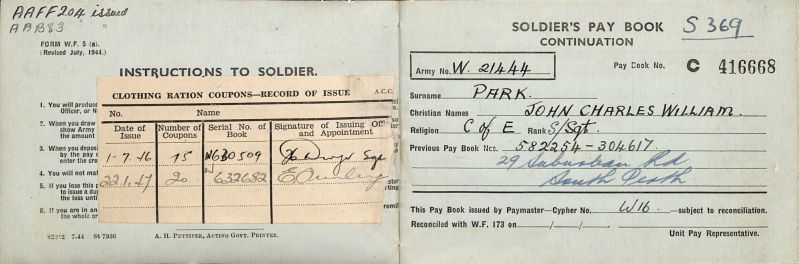 AAFF204 issued
ABB83
FORM W.F. 5 (a).
(Revised July, 1944.)
INSTRUCTIONS TO SOLDIER.
CLOTHING RATION COUPONS—RECORD OF ISSUE A.C.C.
No. Name
Date of Issue Number of Coupons Serial No. of Book Signature of Issuing Off and Appointment
1-7.46 15 N630509 Sgt
22.1.47 20 N 632682
1. You will produce
Officer, or N
2. When you draw
show Army
the amount
3. When you deposi
by the pay
enter the cre
4. You will not mak
5. If you lose this p
to issue a du
the loss until
6. If you are in an
the whole or
82912 7.44 St 7936 A. H. PETTIFER, ACTING GOVT. PRINTER.
SOLDIER'S PAY BOOK S 369
CONTINUATION
Army No. W. 21444 Pay Book No. C 416668
Surname PARK.
Christian Names JOHN CHARLES WILLIAM.
Religion C of E Rank S/Sgt.
Previous Pay Book Nos. 582254-304617.
29 Suburban Rd
South Perth
This Pay Book issued by Paymaster—Cypher No. W16 —subject to reconciliation.
Reconciled with W.F. 173 on / /
Unit Pay Representative.